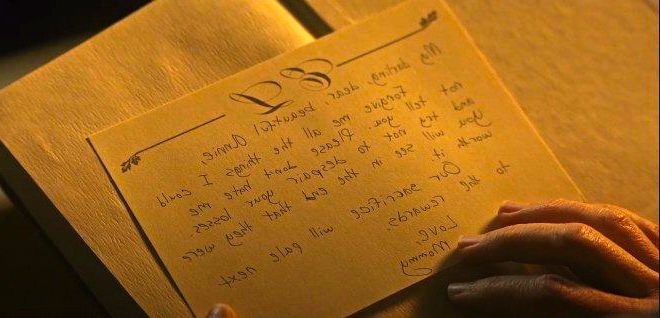 My darling, dear, beautiful Annie,
Forgive me all the things I could
not tell you. Please don't hate me
and try not to despair your losses
You will see in the end that they were
worth it. Our sacrifice will pale next
to the rewards.
Love,
Mommy